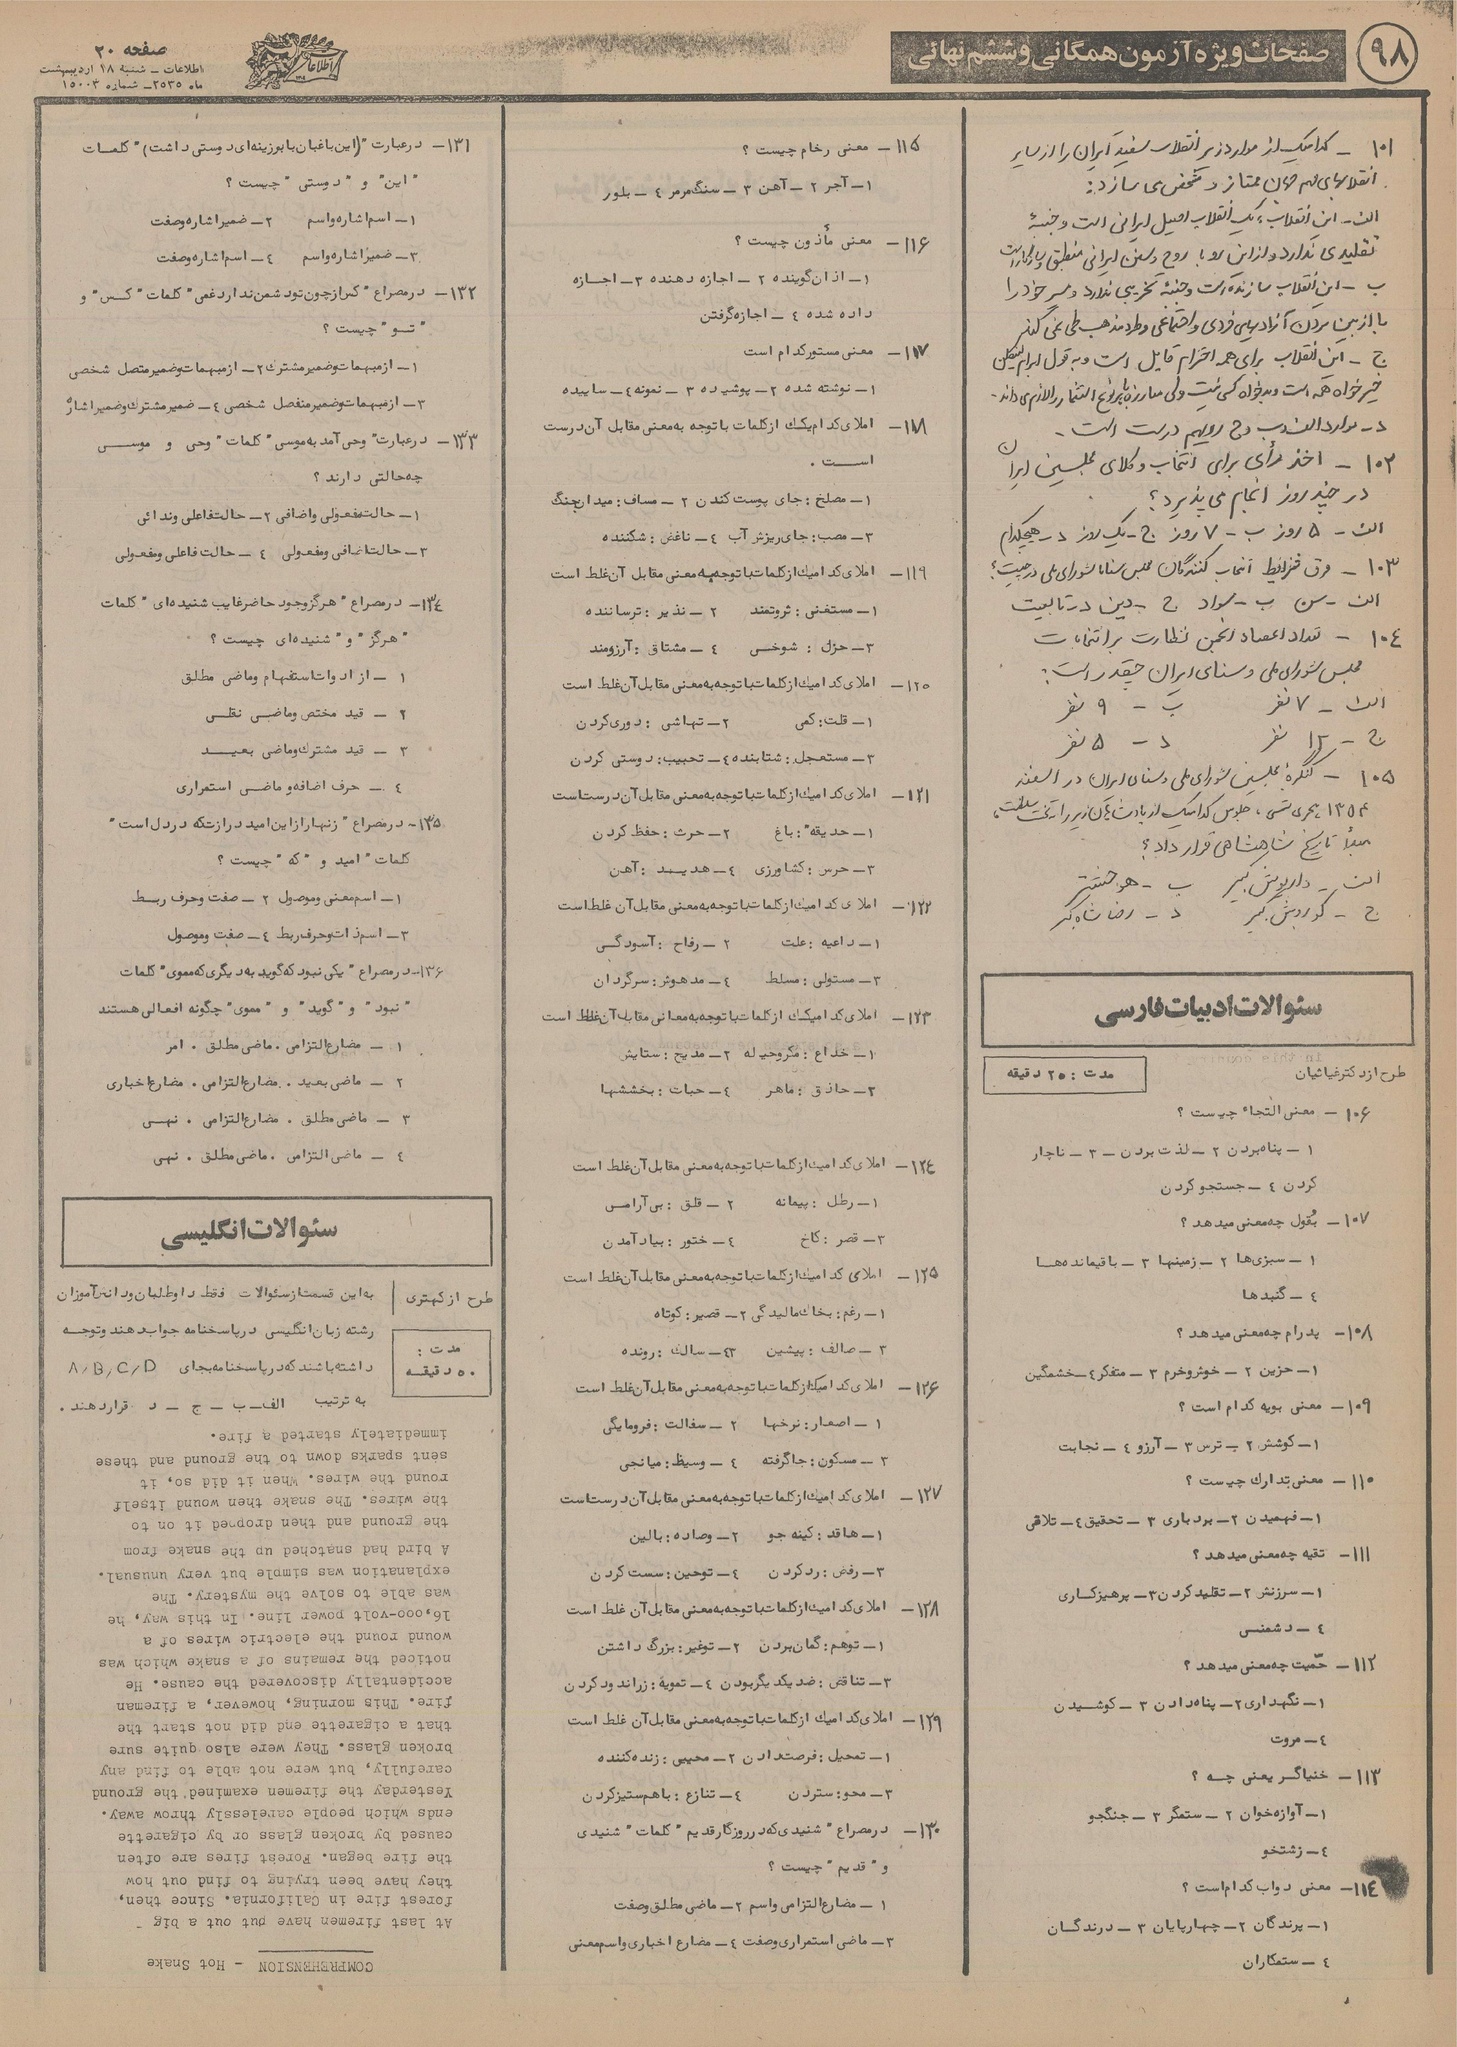 ۹۸
صفحات ویژه آزمون همگانی و ششم نهائی
اطلاعات
صفحه ۲۰
اطلاعات ـ شنبه ۱۸ اردیبهشت
ماه ۲۵۳۵ ـ شماره ۱۵۰۰۳
۱۰۱ ـ کدامیک از موارد زیر انقلاب سفید ایران را از سایر
انقلابهای مهم جهان ممتاز و مشخص می سازد:
الف ـ این انقلاب، یک انقلاب اصیل ایرانی است و جنبهٔ
تقلیدی ندارد و از این رو با روح و سنن ایرانی منطبق و سازگار است
ب ـ این انقلاب سازنده است و جنبهٔ تخریبی ندارد و مسیر خود را
با از بین بردن آزادیهای فردی و اجتماعی و طرد مذهب طی نمی کند
ج ـ این انقلاب برای همه احترام قایل است و به قول
خیرخواه همه است و بدخواه کسی نیست ولی مبارزه با هر نوع استثمار را لازم می داند.
د ـ موارد الف و ب و ج رویهم درست است.
۱۰۲ ـ اخذ رأی برای انتخاب وکلای مجلسین ایران
در چند روز انجام می پذیرد؟
الف ـ ۵ روز ب ـ ۷ روز ج ـ یک روز د ـ هیچکدام
۱۰۳ ـ فرق شرائط انتخاب کنندگان مجلس سنا با شورای ملی در چیست؟
الف ـ سن ب ـ سواد ج ـ دین د ـ تابعیت
۱۰۴ ـ تعداد اعضاء انجمن نظارت بر انتخابات
مجلس شورای ملی و سنای ایران چقدر است:
الف ـ ۷ نفر ب ـ ۹ نفر
ج ـ ۱۲ نفر د ـ ۵ نفر
۱۰۵ ـ کنگرهٔ مجلسین شورای ملی و سنای ایران در اسفند
۱۳۵۴ هجری شمسی، جلوس کدامیک از پادشاهان زیر را به تخت سلطنت،
مبدأ تاریخ شاهنشاهی قرار داد؟
الف ـ داریوش کبیر ب ـ هوخشتر
ج ـ کوروش کبیر د ـ رضا شاه کبیر
سئوالات ادبیات فارسی
طرح از دکتر غیاثیان
مدت : ۲۵ دقیقه
۱۰۶ ـ معنی التجاء چیست ؟
۱ ـ پناه بردن ۲ ـ لذت بردن ـ ۳ ـ ناچار
کردن ٤ ـ جستجو کردن
۱۰۷ ـ بُقول چه معنی میدهد ؟
۱ ـ سبزی ها ۲ ـ زمینها ۳ ـ باقیمانده ها
٤ ـ گنبدها
۱۰۸ ـ پدرام چه معنی میدهد ؟
۱ ـ حزین ۲ ـ خوش وخرم ۳ ـ متفکر ٤ ـ خشمگین
۱۰۹ ـ معنی بویه کدام است ؟
۱ ـ کوشش ۲ ـ ترس ۳ ـ آرزو ٤ ـ نجابت
۱۱۰ ـ معنی تدارك چیست ؟
۱ ـ فهمیدن ۲ ـ بردباری ۳ ـ تحقیق ٤ ـ تلافی
۱۱۱ ـ تقیه چه معنی میدهد ؟
۱ ـ سرزنش ۲ ـ تقلید کردن ۳ ـ پرهیزکاری
٤ ـ دشمنی
۱۱۲ ـ حمّیت چه معنی میدهد ؟
۱ ـ نگهداری ۲ ـ پناه دادن ۳ ـ کوشیدن
٤ ـ مروت
۱۱۳ ـ خنیاگر یعنی چه ؟
۱ ـ آوازه خوان ۲ ـ ستمگر ۳ ـ جنگجو
٤ ـ زشتخو
۱۱٤ ـ معنی دواب کدام است ؟
۱ ـ پرندگان ۲ ـ چهارپایان ۳ ـ درندگان
٤ ـ ستمکاران
۱۱۵ ـ معنی رخام چیست ؟
۱ ـ آجر ۲ ـ آهن ۳ ـ سنگ مرمر ٤ ـ بلور
۱۱۶ ـ معنی مأذون چیست ؟
۱ ـ اذان گوینده ۲ ـ اجازه دهنده ۳ ـ اجازه
داده شده ٤ ـ اجازه گرفتن
۱۱۷ ـ معنی مستور کدام است
۱ ـ نوشته شده ۲ ـ پوشیده ۳ ـ نمونه ٤ ـ ساییده
۱۱۸ ـ املای کدام یك از کلمات با توجه به معنی مقابل آن درست
است .
۱ ـ مصلخ : جای پوست کندن ۲ ـ مساف : میدان جنگ
۳ ـ مصب : جای ریزش آب ٤ ـ ناغض : شکننده
۱۱۹ ـ املای کدامیك از کلمات با توجه به معنی مقابل آن غلط است
۱ ـ مستغنی : ثروتمند ۲ ـ نذیر : ترساننده
۳ ـ حزل : شوخی ٤ ـ مشتاق : آرزومند
۱۲۰ ـ املای کدامیك از کلمات با توجه به معنی مقابل آن غلط است
۱ ـ قلت : کمی ۲ ـ تهاشی : دوری کردن
۳ ـ مستعجل : شتابنده ٤ ـ تحبیب : دوستی کردن
۱۲۱ ـ املای کدامیك از کلمات با توجه به معنی مقابل آن درست است
۱ ـ حدیقه : باغ ۲ ـ حرث : حفظ کردن
۳ ـ حرس : کشاورزی ٤ ـ هدید : آهن
۱۲۲ ـ املای کدامیك از کلمات با توجه به معنی مقابل آن غلط است
۱ ـ داعیه : علت ۲ ـ رفاح : آسودگی
۳ ـ مستولی : مسلط ٤ ـ مدهوش : سرگردان
۱۲۳ ـ املای کدامیك از کلمات با توجه به معانی مقابل آن غلط است
۱ ـ خداع : مکر و حیله ۲ ـ مدیح : ستایش
۳ ـ حاذق : ماهر ٤ ـ حبات : بخششها
۱۲٤ ـ املای کدامیك از کلمات با توجه به معنی مقابل آن غلط است
۱ ـ رطل : پیمانه ۲ ـ قلق : بی آرامی
۳ ـ قصر : کاخ ٤ ـ ختور : بیاد آمدن
۱۲۵ ـ املای کدامیك از کلمات با توجه به معنی مقابل آن غلط است
۱ ـ رغم : بخاك مالیدگی ۲ ـ قصیر : کوتاه
۳ ـ صالف : پیشین ٤ ـ سالك : رونده
۱۲۶ ـ املای کدامیك از کلمات با توجه به معنی مقابل آن غلط است
۱ ـ اصعار : نرخها ۲ ـ سفالت : فرومایگی
۳ ـ مسکون : جا گرفته ٤ ـ وسیط : میانجی
۱۲۷ ـ املای کدامیك از کلمات با توجه به معنی مقابل آن درست است
۱ ـ هاقد : کینه جو ۲ ـ وصاده : بالین
۳ ـ رفض : رد کردن ٤ ـ توحین : سست کردن
۱۲۸ ـ املای کدامیك از کلمات با توجه به معنی مقابل آن غلط است
۱ ـ توهم : گمان بردن ۲ ـ توغیر : بزرگ داشتن
۳ ـ تناقض : ضد یکدیگر بودن ٤ ـ تمویه : زراندود کردن
۱۲۹ ـ املای کدامیك از کلمات با توجه به معنی مقابل آن غلط است
۱ ـ تمحیل : فرصت دادن ۲ ـ محیی : زنده کننده
۳ ـ محو : ستردن ٤ ـ تنازع : باهم ستیز کردن
۱۳۰ ـ در مصراع "شنیدی که در روزگار قدیم" کلمات "شنیدی
و "قدیم" چیست ؟
۱ ـ مضارع التزامی و اسم ۲ ـ ماضی مطلق و صفت
۳ ـ ماضی استمراری و صفت ٤ ـ مضارع اخباری و اسم معنی
۱۳۱ ـ در عبارت "(این باغبان با بوزینه ای دوستی داشت)" کلمات
"این" و "دوستی" چیست ؟
۱ ـ اسم اشاره و اسم ۲ ـ ضمیر اشاره و صفت
۳ ـ ضمیر اشاره و اسم ٤ ـ اسم اشاره و صفت
۱۳۲ ـ در مصراع "کس از چون تو دشمن ندارد غمی" کلمات "کس" و
"تو" چیست ؟
۱ ـ از مبهمات و ضمیر مشترك ۲ ـ از مبهمات و ضمیر متصل شخصی
۳ ـ از مبهمات و ضمیر منفصل شخصی ٤ ـ ضمیر مشترك و ضمیر اشاره
۱۳۳ ـ در عبارت "وحی آمد به موسی" کلمات "وحی و موسی
چه حالتی دارند ؟
۱ ـ حالت مفعولی و اضافی ۲ ـ حالت فاعلی و ندائی
۳ ـ حالت اضافی و مفعولی ٤ ـ حالت فاعلی و مفعولی
۱۳٤ ـ در مصراع "هرگز وجود حاضر غایب شنیده ای" کلمات
"هرگز" و "شنیده ای" چیست ؟
۱ ـ از ادوات استفهام و ماضی مطلق
۲ ـ قید مختص و ماضی نقلی
۳ ـ قید مشترك و ماضی بعید
٤ ـ حرف اضافه و ماضی استمراری
۱۳۵ ـ در مصراع "زنهار از این امید درازت که در دل است"
کلمات "امید و "که" چیست ؟
۱ ـ اسم معنی و موصول ۲ ـ صفت و حرف ربط
۳ ـ اسم ذات و حرف ربط ٤ ـ صفت و موصول
۱۳۶ ـ در مصراع "یکی نبود که گوید به دیگری که مموی" کلمات
"نبود" و "گوید" و "مموی" چگونه افعالی هستند
۱ ـ مضارع التزامی . ماضی مطلق . امر
۲ ـ ماضی بعید . مضارع التزامی . مضارع اخباری
۳ ـ ماضی مطلق . مضارع التزامی . نهی
٤ ـ ماضی التزامی . ماضی مطلق . نهی
سئوالات انگلیسی
طرح از کهتری
مدت :
۵۰ دقیقه
به این قسمت از سئوالات فقط داوطلبان و دانش آموزان
رشته زبان انگلیسی در پاسخنامه جواب دهند و توجه
داشته باشند که در پاسخنامه بجای A/B/C/D
به ترتیب الف ـ ب ـ ج ـ د قرار دهند .
COMPREHENSION - Hot Snake
At last firemen have put out a big
forest fire in California. Since then,
they have been trying to find out how
the fire began. Forest fires are often
caused by broken glass or by cigarette
ends which people carelessly throw away.
Yesterday the firemen examined the ground
carefully, but were not able to find any
broken glass. They were also quite sure
that a cigarette end did not start the
fire. This morning, however, a fireman
accidentally discovered the cause. He
noticed the remains of a snake which was
wound round the electric wires of a
16,000-volt power line. In this way, he
was able to solve the mystery. The
explanation was simple but very unusual.
A bird had snatched up the snake from
the ground and then dropped it on to
the wires. The snake then wound itself
round the wires. When it did so, it
sent sparks down to the ground and these
immediately started a fire.